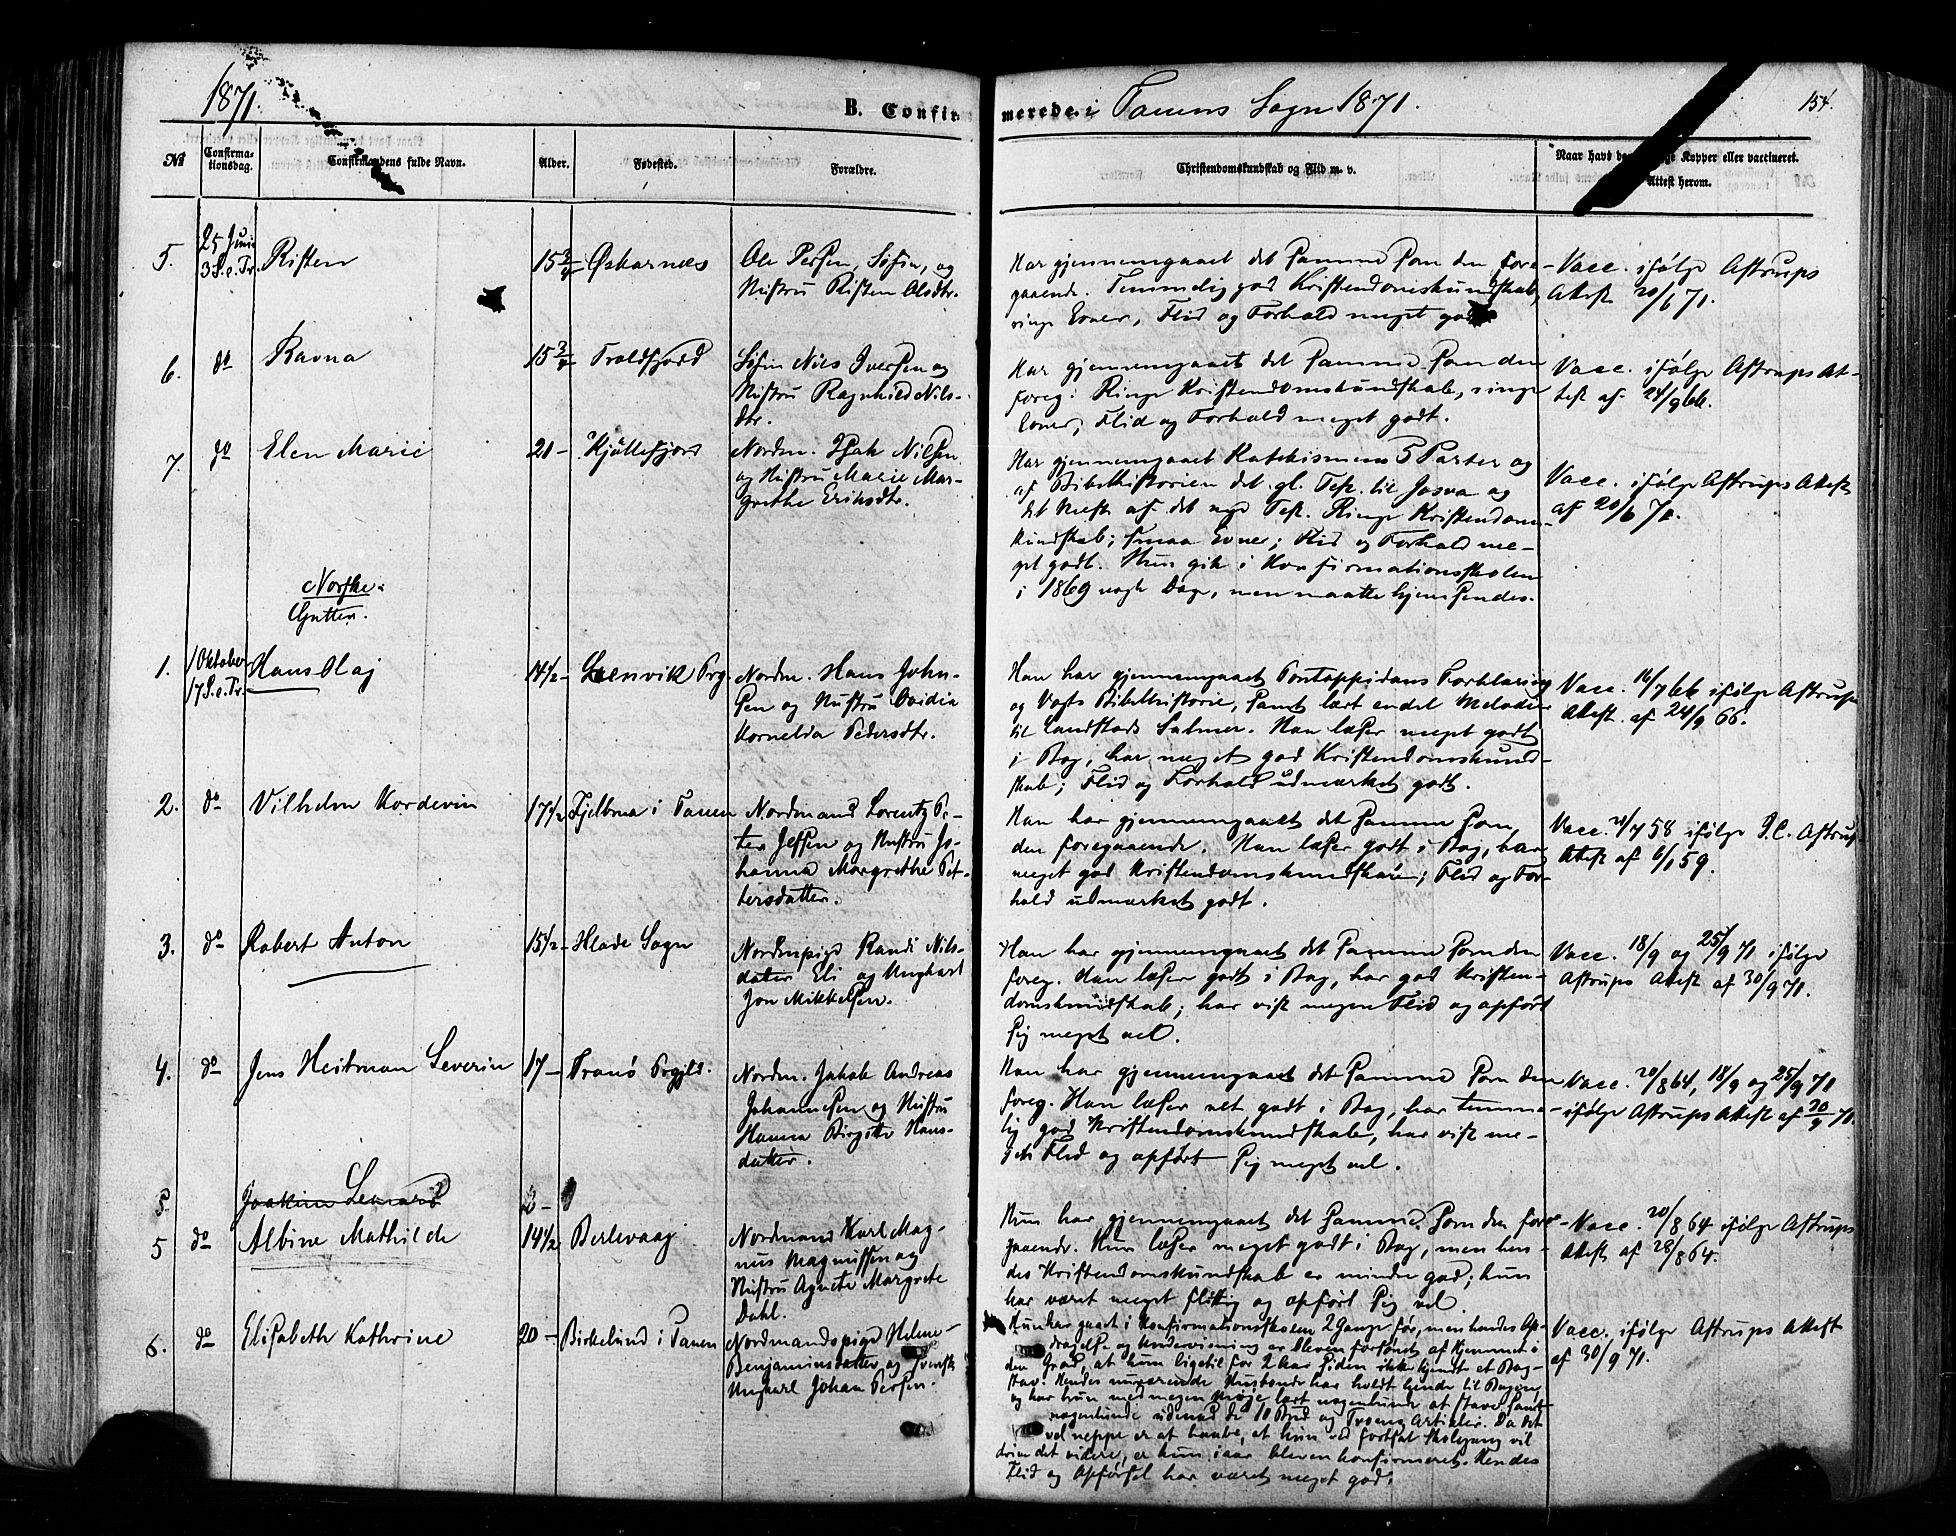 1871.
B. Confirmerede i Tanens Sogn 1871.
154.
No
Confirmationsdag.
Confirmandens fulde Navn.
Alder.
Fødested.
Forældre.
Christendomskundskab og Flid m. v.
Naar havd de Kopper eller vaccineret.
Attest herom.
5.
25 Juni
3 S. e. Tr.
Risten
15 3/4
Øskarnæs
Ole Persen, Søfin, og
Hustru Risten Olsdtr.
Har gjennemgaaet det samme som den fore-
gaaende. Temmelig god Kristendomskundskab,
ringe Evner, Flid og Forhold meget godt.
Vacc. ifølge Astrups
Attest 20/6 71.
6.
do
Ravna
15 3/4
Troldfjord
Søfin Nils Iversen og
Hustru Ragnhild Nils-
dtr.
Har gjennemgaaet det samme som den
foreg. Ringe Kristendomskundskab, ringe
Evner, Flid og Forhold meget godt.
Vacc. ifølge Astrups At-
test af 24/9 66.
7.
do
Elen Marie
21 -
Kjøllefjord
Nordm. Isak Nilsen
og Hustru Marie Mar-
grethe Eriksdtr.
Har gjennemgaaet Katekismens 5 Parter og
af Bibelhistorien det gl. Test. til Josva og
det meste af det nye Test. Ringe Kristendom-
kundskab; smaa Evner; Flid og Forhold me-
get godt. Hun gik i Konfirmationsskolen
i 1869 nogle Dage, men maatte hjemsendes.
Vacc. ifølge Astrups Attest
af 20/6 71.
Norske.
Gutter.
1.
1 Oktober
17 S. e. Tr.
Hans Olaj
14 1/2 -
Lenvik Prg.
Nordm. Hans John-
sen og Hustru Ovidia
Kornelia Pedersdtr.
Han har gjennemgaaet Pontoppidans Forklaring
og Vogts Bibelhistorie, samt lært endel Melodier
til Landstads Salmer. Han læser meget godt
i Bog, har meget god Kristendomskund-
skab; Flid og Forhold udmærket godt.
Vacc. 16/7 66 ifølge Astrups
Attest af 24/9 66.
2.
do
Vilhelm Kordevin
17 1/2
Fjelbma i Tanen
Nordmand Lorentz Pe-
ter Jessen og Hustru Jo-
hanna Margrethe Pet-
tersdatter.
Han har gjennemgaaet det samme som
den foregaaende. Han læser godt i Bog, har
meget god Kristendomskundskab; Flid og For-
hold udmærket godt.
Vacc. 21/7 58 ifølge P. C. Astrups
Attest af 6/1 59.
3.
do
Robert Anton
15 1/2 -
Hlade Sogn
Nordmpige Randi Nils-
datter Eli og Ungkarl
Jon Mikkelsen.
Han har gjennemgaaet det samme som den
foreg. Han læser godt i Bog, har god Kristen-
domskundskab; har vist megen Flid og opført
sig meget vel.
Vacc. 18/9 og 25/9 71 ifølge
Astrups Attest af 30/9 71.
4.
do
Jens Heitman Severin
17 -
Tranö Prgjld.
Nordm. Jakob Andreas
Johannesen og Hustru
Hanna Birgitte Hans-
datter.
Han har gjennemgaaet det samme som den
foreg. Han læser ret godt i Bog, har temme-
lig god Kristendomskundskab, har vist me-
gen Flid og opført sig meget vel.
Vacc. 20/8 64, 18/9 og 25/9 71
ifølge Astrups Attest af 30/9 71.
5.
Joakim Lenard
5
do
Albine Mathilde
14 1/2
Berlevaag
Nordmand Karl Mag-
nus Magnussen og
Hustru Agnete Margrete
Dahl.
Hun har gjennemgaaet det samme som den fore-
gaaende. Hun læser meget godt i Bog, men hen-
des Kristendomskundskab er mindre god; hun
har været meget flittig og opført sig vel.
Vacc. 20/8 64 ifølge Astrups
Attest af 28/8 64.
6.
do
Elisabeth Kathrine
20 -
Birkelund i Tanen
Nordmandspige Helene
Benjaminsdatter og svensk
Ungkarl Johan Persen.
Hun har gaaet i Konfirmationsskolen 2 Gange før, men hendes Op-
dragelse og Undervisning er bleven forsømt af Hjemmet i
den Grad, at hun ligetil for 2 Aar siden ikke kjendte et Bog-
stav. Hendes nuværende Husbonde har holdt hende til Bogen,
og har hun med megen Møje lært nogenlunde at stave samt
nogenlunde udenad de 10 Bud og Troens Artikler. Da det
vel neppe er at haabe, at hun ved fortsat Skolegang vil
drive det videre, er hun i aar bleven konfirmeret. Hendes
Flid og Opførsel har været meget god.
Vacc. ifølge Astrups Attest
af 30/9 71.